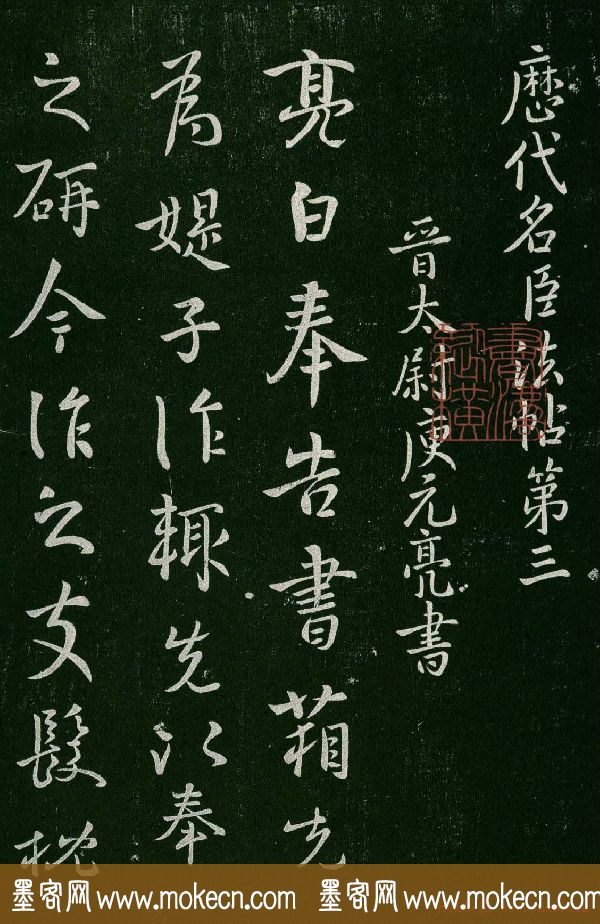 厯代名臣法帖第三
晉太尉庾元亮書
亮白奉告書葙先
為媞子作輙先以奉
之研今作之支髮枕
墨客网 www.mokecn.com 墨客网 www.mokecn.com